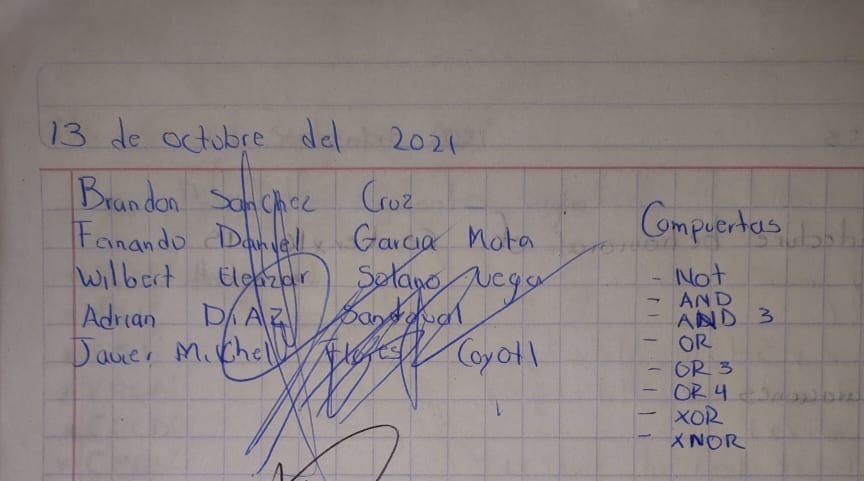 13 de octubre del 2021
Brandon Sanchez Cruz
Fernando Daniell Garcia Mota
Wilbert Eleazar Solano Vega
Adrian DiAZ Sandoval
Javier Michel Flores Coyotl
Compuertas
- Not
- AND
- AND 3
- OR
- OR 3
- OR 4
- XOR
- XNOR